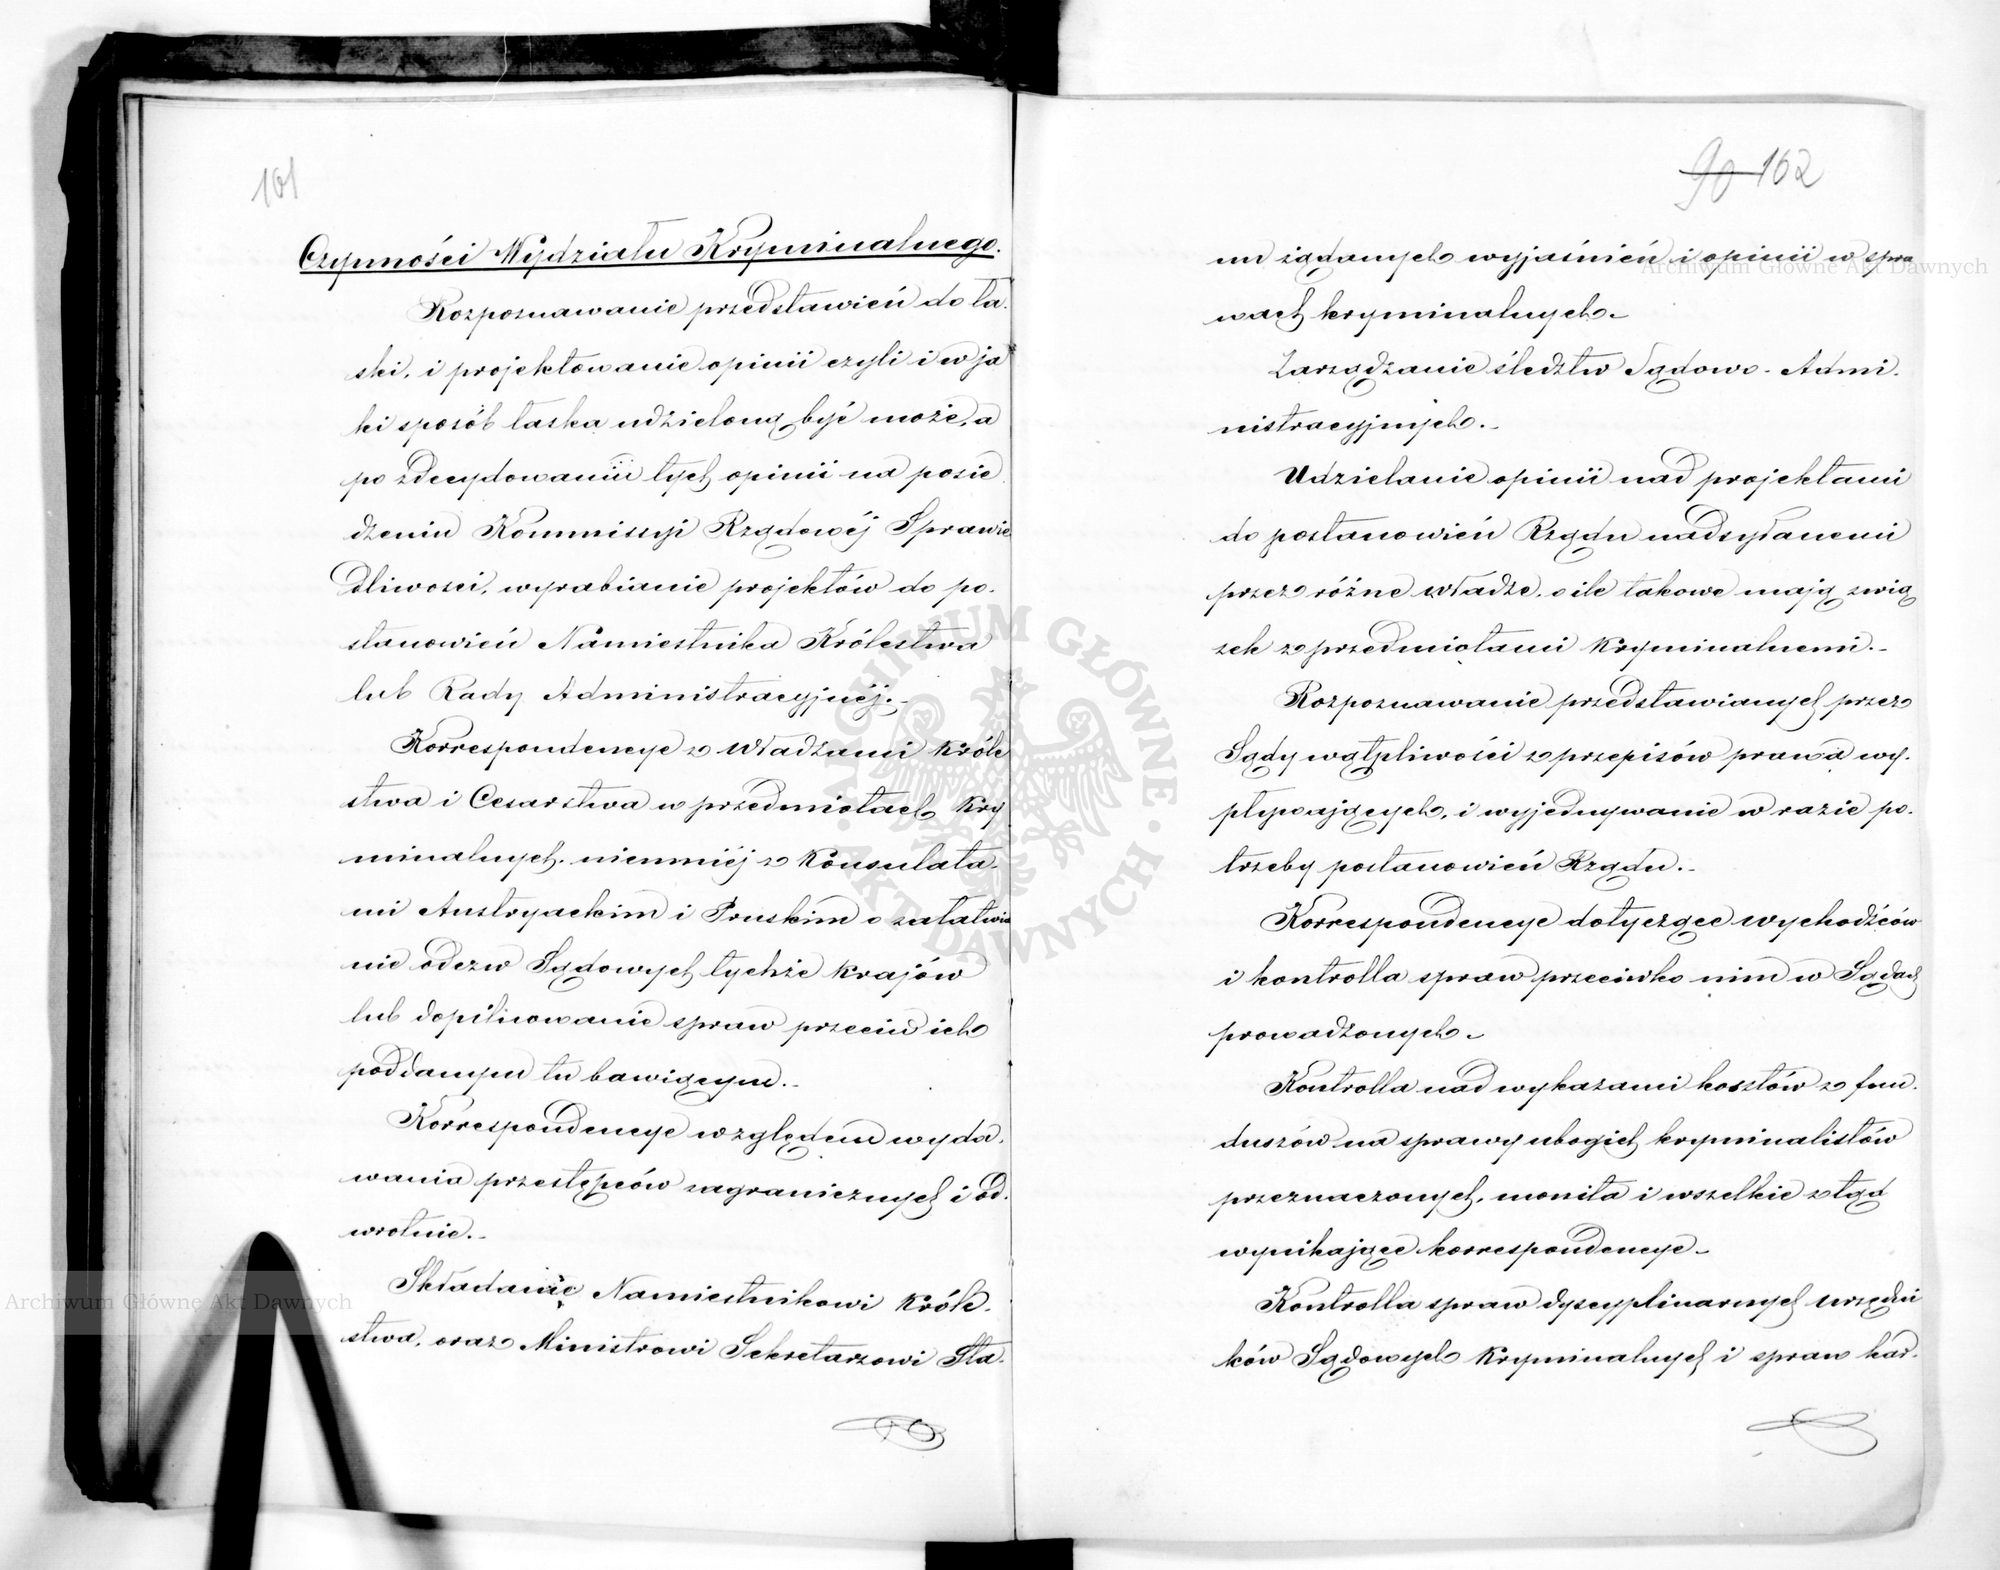 101
Czynności Wydziału Kryminalnego.
Rozpoznawanie przedstawień do ła-
ski, i projektowanie opinii czyli i w ja
ki sposób łaska udzieloną być może, a
po zdecydowaniu tych opinii na posie
dzeniu Kommissyi Rządowéj Sprawie
dliwości, wyrabianie projektów do po-
stanowień Namiestnika Królestwa
lub Rady Administracyjnéj.-
Korrespondencye z Władzami Króle
stwa i Cesarstwa w przedmiotach Kry
minalnych, niemniéj z Konsulata-
mi Austryackim i Pruskim o załatwia
nie odezw Sądowych tychże krajów
lub dopilnowanie spraw przeciw ich
poddanym tu bawiącym.-
Korrespondencye względem wyda-
wania przestępców zagranicznych i od-
wrotnie.-
Składanie Namiestnikowi Króle-
stwa, oraz Ministrowi Sekretarzowi Sta-
90 162
nu żądanych wyjaśnień i opinii w spra
wach kryminalnych.-
Zarządzanie śledztw Sądowo-Admi-
nistracyjnych.-
Udzielanie opinii nad projektami
do postanowień Rządu nadsyłanemi
przez różne Władze, o ile takowe mają zwią
zek z przedmiotami Kryminalnemi.-
Rozpoznawanie przedstawianych przez
Sądy wątpliwości z przepisów prawa wy-
pływających, i wyjednywanie w razie po-
trzeby postanowień Rządu.-
Korrespondencye dotyczące wychodźców
i kontrolla spraw przeciwko nim w Sądach
prowadzonych.-
Kontrolla nad wykazami kosztów z fun-
duszów na sprawy ubogich kryminalistów
przeznaczonych, monita i wszelkie ztąd
wynikające korrespondencye.-
Kontrolla spraw dyscyplinarnych urzędni
ków Sądowych Kryminalnych i spraw kar-
Archiwum Główne Akt Dawnych
Archiwum Główne Akt Dawnych
ARCHIWUM GŁÓWNE · AKT DAWNYCH ·